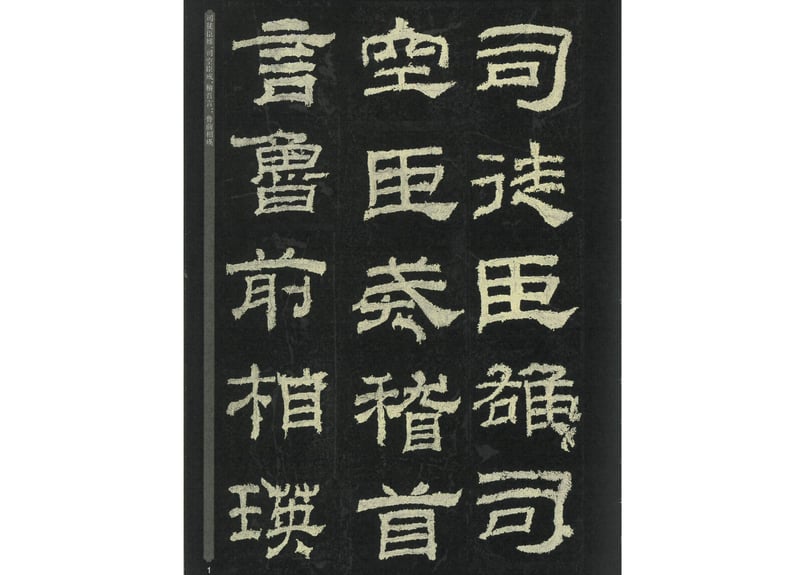 司徒臣雄司
空臣戒稽首
言魯前相瑛
司徒臣雄、司空臣戒，稽首言：鲁前相瑛
1